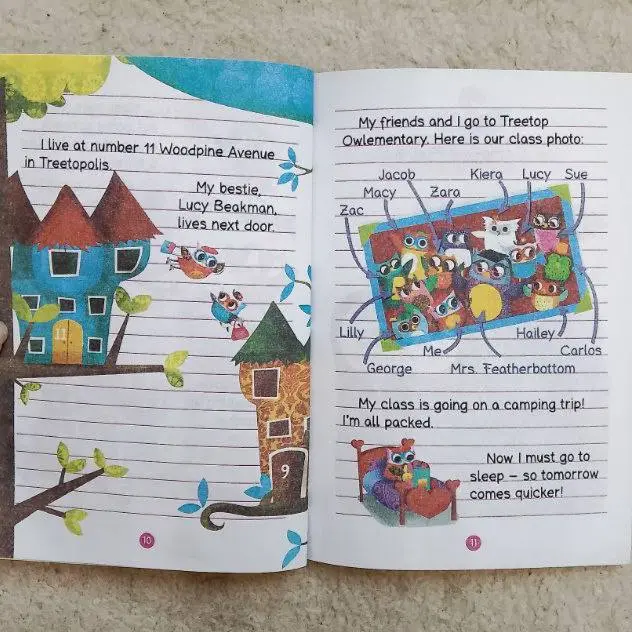 I live at number 11 Woodpine Avenue
in Treetopolis.
My bestie,
Lucy Beakman,
lives next door.
11
9
10
My friends and I go to Treetop
Owlementary. Here is our class photo:
Jacob
Kiera
Lucy
Sue
Macy
Zara
Zac
Lilly
Me
Hailey
Carlos
George
Mrs. Featherbottom
My class is going on a camping trip!
I'm all packed.
Now I must go to
sleep – so tomorrow
comes quicker!
11